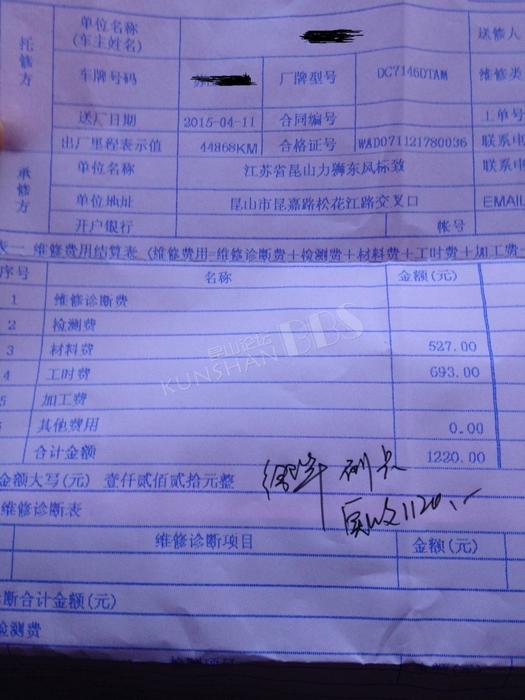 托修方 单位名称(车主姓名) 送修人
车牌号码 厂牌型号 DC7146DTAM 维修类
送厂日期 2015-04-11 合同编号 工单号
出厂里程表示值 44868KM 合格证号 WAD071121780036 联系电
承修方 单位名称 江苏省昆山力狮东风标致 联系电
单位地址 昆山市昆嘉路松花江路交叉口 EMAIL
开户银行 帐号
表一 维修费用结算表 (维修费用=维修诊断费+检测费+材料费+工时费+加工费
序号 名称 金额(元)
1 维修诊断费
2 检测费
3 材料费 527.00
4 工时费 693.00
5 加工费
6 其他费用 0.00
合计金额 1220.00
金额大写(元) 壹仟贰佰贰拾元整
实收1120.
维修诊断表
维修诊断项目 金额(元)
诊断合计金额(元)
检测费
昆山论坛
KUNSHAN BBS